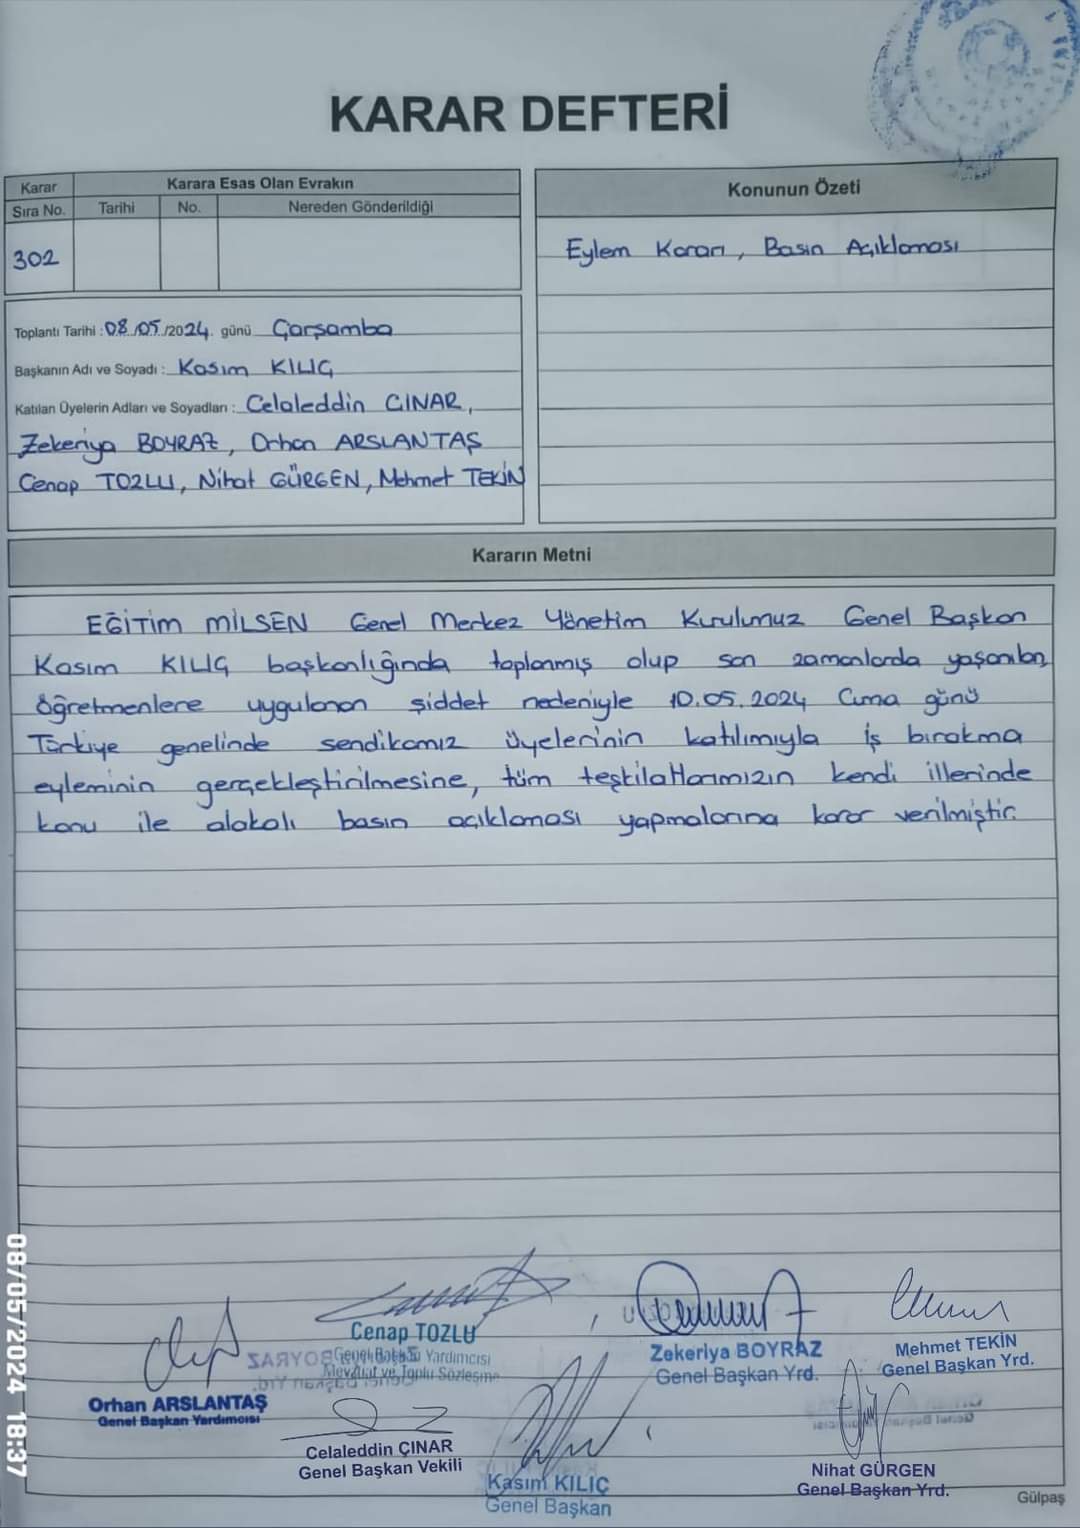 KARAR DEFTERİ
Karar
Sıra No.
Karara Esas Olan Evrakın
Tarihi
No.
Nereden Gönderildiği
302
Konunun Özeti
Eylem Kararı, Basın Açıklaması
Toplantı Tarihi : 08/05/2024 günü Çarşamba
Başkanın Adı ve Soyadı : Kasım KILIÇ
Katılan Üyelerin Adları ve Soyadları : Celaleddin ÇINAR,
Zekeriya BOYRAZ, Orhan ARSLANTAŞ
Cenap TOZLU, Nihat GÜRGEN, Mehmet TEKİN
Kararın Metni
EĞİTİM MİLSEN Genel Merkez Yönetim Kurulumuz Genel Başkan
Kasım KILIÇ başkanlığında toplanmış olup son zamanlarda yaşanılan,
öğretmenlere uygulanan şiddet nedeniyle 10.05.2024 Cuma günü
Türkiye genelinde sendikamız üyelerinin katılımıyla iş bırakma
eyleminin gerçekleştirilmesine, tüm teşkilatlarımızın kendi illerinde
konu ile alakalı basın açıklaması yapmalarına karar verilmiştir.
Cenap TOZLU
Genel Başkan Yardımcısı
Mevzuat ve Toplu Sözleşme
Zekeriya BOYRAZ
Genel Başkan Yrd.
Mehmet TEKİN
Genel Başkan Yrd.
Orhan ARSLANTAŞ
Genel Başkan Yardımcısı
Celaleddin ÇINAR
Genel Başkan Vekili
Kasım KILIÇ
Genel Başkan
Nihat GÜRGEN
Genel Başkan Yrd.
Gülpaş
08/05/2024 18:37